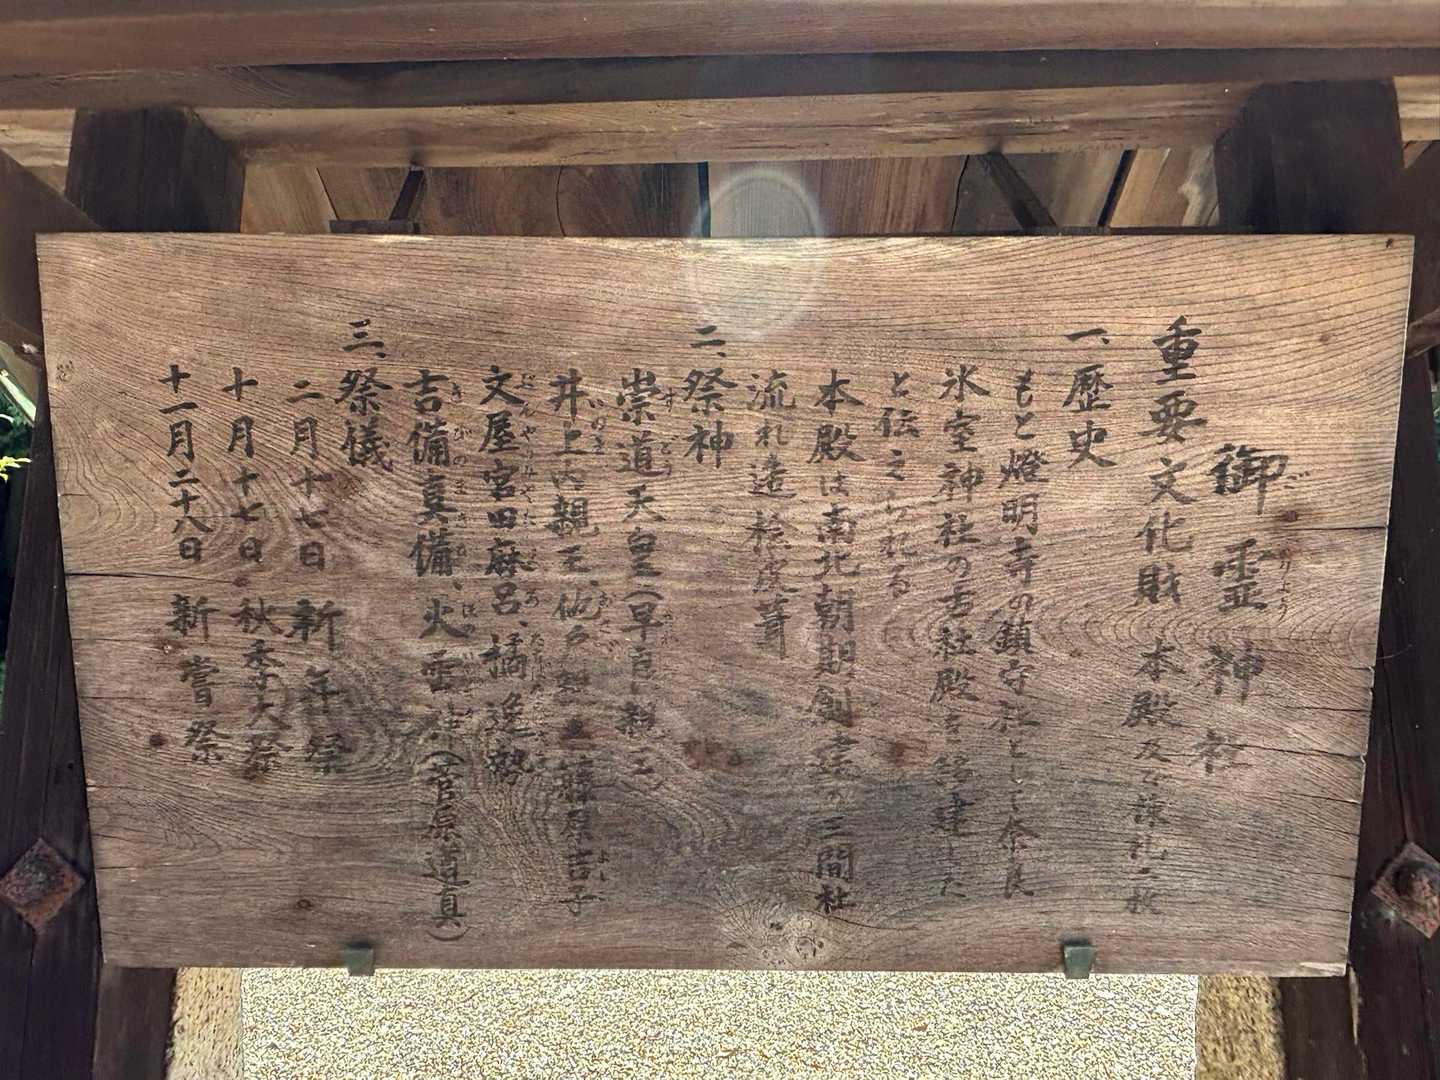 御霊神社
重要文化財 本殿及び棟札一枚
一、歴史
もと燈明寺の鎮守社として奈良
氷室神社の古社殿を移建した
と伝えられる
本殿は南北朝期創建の三間社
流れ造桧皮葺
二、祭神
崇道天皇(早良親王)
井上内親王、他戸親王、藤原吉子
文屋宮田麻呂、橘逸勢
吉備真備、火雷神(菅原道真)
三、祭儀
二月十七日 新年祭
十月十七日 秋季大祭
十一月二十八日 新嘗祭